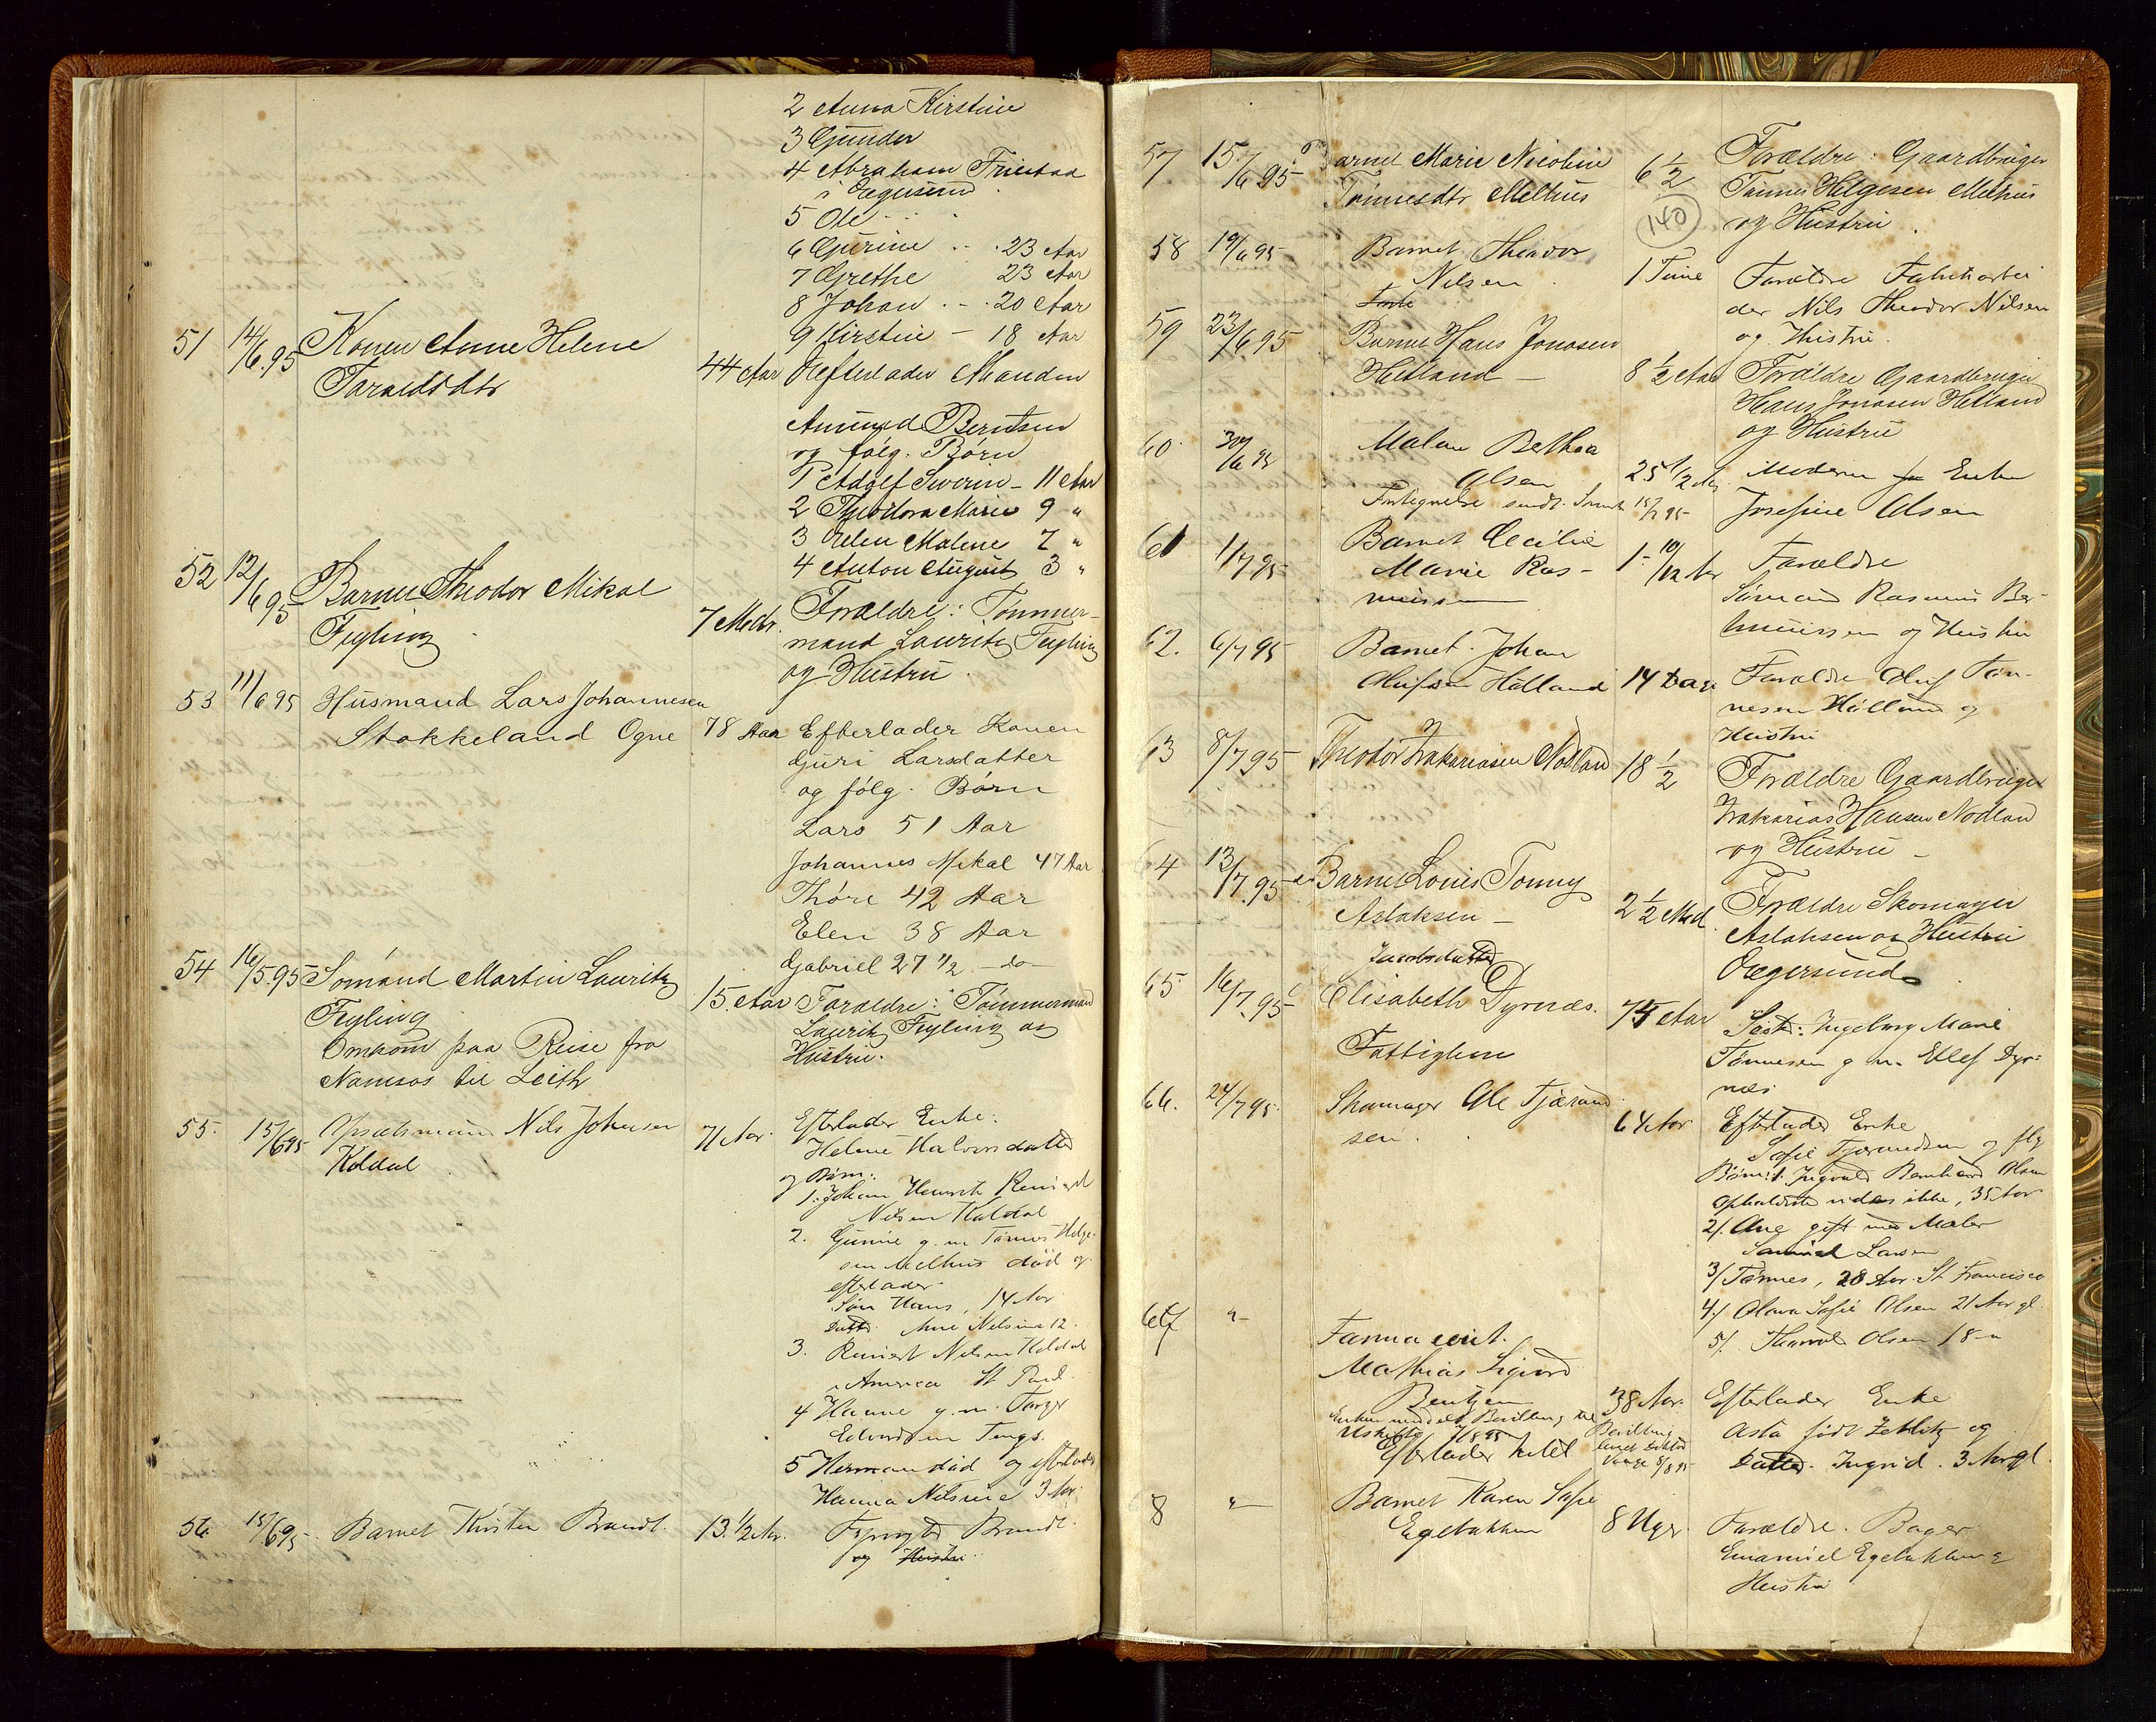 2 Anna Kirstine
3 Gunder
4 Abraham Friestad
i Egersund
5 Ole
6 Gurine 23 Aar
7 Grethe 23 Aar
8 Johan 20 Aar
9 Kirstine - 18 Aar
51 14/6.95 Konen Anne Helene
Taraldsdtr 44 Aar Efterlader Manden
Amund Berntsen
og følg. Børn
1 Adolf Severin - 11 Aar
2 Theodora Marie 9 "
3 Elen Malene 7 "
4 Anton August 3 "
52 12/6 95 Barnet Theodor Mikal
Feyling 7 Mdr. Forældre: Tømmer-
mand Lauritz Feyling
og Hustru.
53 11/6 95 Husmand Lars Johannesen
Stokkeland Ogne 78 Aar Efterlader Konen
Guri Larsdatter
og følg. Børn
Lars 51 Aar
Johannes Mikal 47 Aar
Thore 42 Aar
Elen 38 Aar
Gabriel 27 1/2 - do -
54 16/5.95 Sømand Martin Lauritz
Feyling 15 Aar Forældre: Tømmermand
Lauritz Feyling og
Hustru.
Omkom paa Reise fra
Namsos til Leith
55. 15/6 95 Nils Johnsen
Koldal 71 Aar. Efterlader Enke:
Helene Halvorsdatter
og Børn:
1. Johan Henrik Reinert
Nilsen Koldal
2. Gunne g. m. Tønnes Helge-
sen Melhus død og
efterlader
Søn Hans, 14 Aar
Datter Ane Nilsine 12.
3. Reinert Nilsen Koldal
i America St Paul.
4 Hanne g. m. Torger
Edvardsen Tengs.
5 Herman død og efterlader
Hanna Nilsine 3 Aar.
56 15/6 95. Barnet Kirsten Brandt. 13 1/2 Aar. Brandt.
og Hustru.
57 15/6 95 Barnet Marie Nicoline
Tønnesdtr Melhus 6 1/2 Forældre: Gaardbruger
Tønnes Helgesen Melhus
og Hustru.
140
58 19/6 95 Barnet Theodor
Nilsen 1 Time Forældre Fabrikarbei
der Nils Theodor Nilsen
og Hustru.
59 23/6 95 Barnet Hans Jonasen
Hetland - 8 1/2 Aar Forældre Gaardbruger
Hans Jonasen Hetland
og Hustru
60. 30/6 95 Malene Bertha
Olsen 25 1/2 Aar Moderen Enke
Josefine Olsen
Fortegnelse sendt 15/7 95
61 1/7 95 Barnet Cecilie
Marie Ras-
mussen 1 10/12 Aar Forældre
Sømand Rasmus
og Hustru
62. 6/7 95 Barnet Johan
Olufsen Hølland 14 Dage Forældre Oluf Tøn-
nesen Hølland og
Hustru
63 8/7.95 Theodor Zakariasen Nodland 18 1/2 Forældre Gaardbruger
Zakarias Hansen Nodland
og Hustru -
64 13/7.95 Barnet Louis Tonny
Aslaksen - 2 1/2 Md. Forældre Skomager
Aslaksen og Hustru
Egersund
Jacobsdatter
65 16/7.95 Elisabeth Dyrnæs. 75 Aar
Fattiglem Søst: Ingeborg Marie
Tønnesen g. m. Ellef Dyr-
næs
66. 24/7 95. Skomager Ole Tjærand
sen. 64 Aar Efterlader Enke
Sofie Tjærandsen og flg
Børn: 1. Ingvald Bernhard Olsen
Opholdsted vides ikke, 35 Aar
2/. Ane gift med Maler
Samuel Larsen
3/ Tønnes, 28 Aar. St Francisco
4/ Olava Sofie Olsen 21 Aar gl.
5/. Thorvald Olsen 18 -"
67 " Farmaceut.
Mathias Sigurd
Bentzen 38 Aar. Efterlader Enke
Asta født Zetlitz og
Datter. Ingrid. 3 Aar gl.
Enken meddelt Bevilling til
Uskifte 7/8 95
Efterlader
Bevilling
8/8 95
8 " Barnet Karen Sofie
Egebakken 8 Uger. Forældre. Bager
Emanuel Egebakken &
Hustru